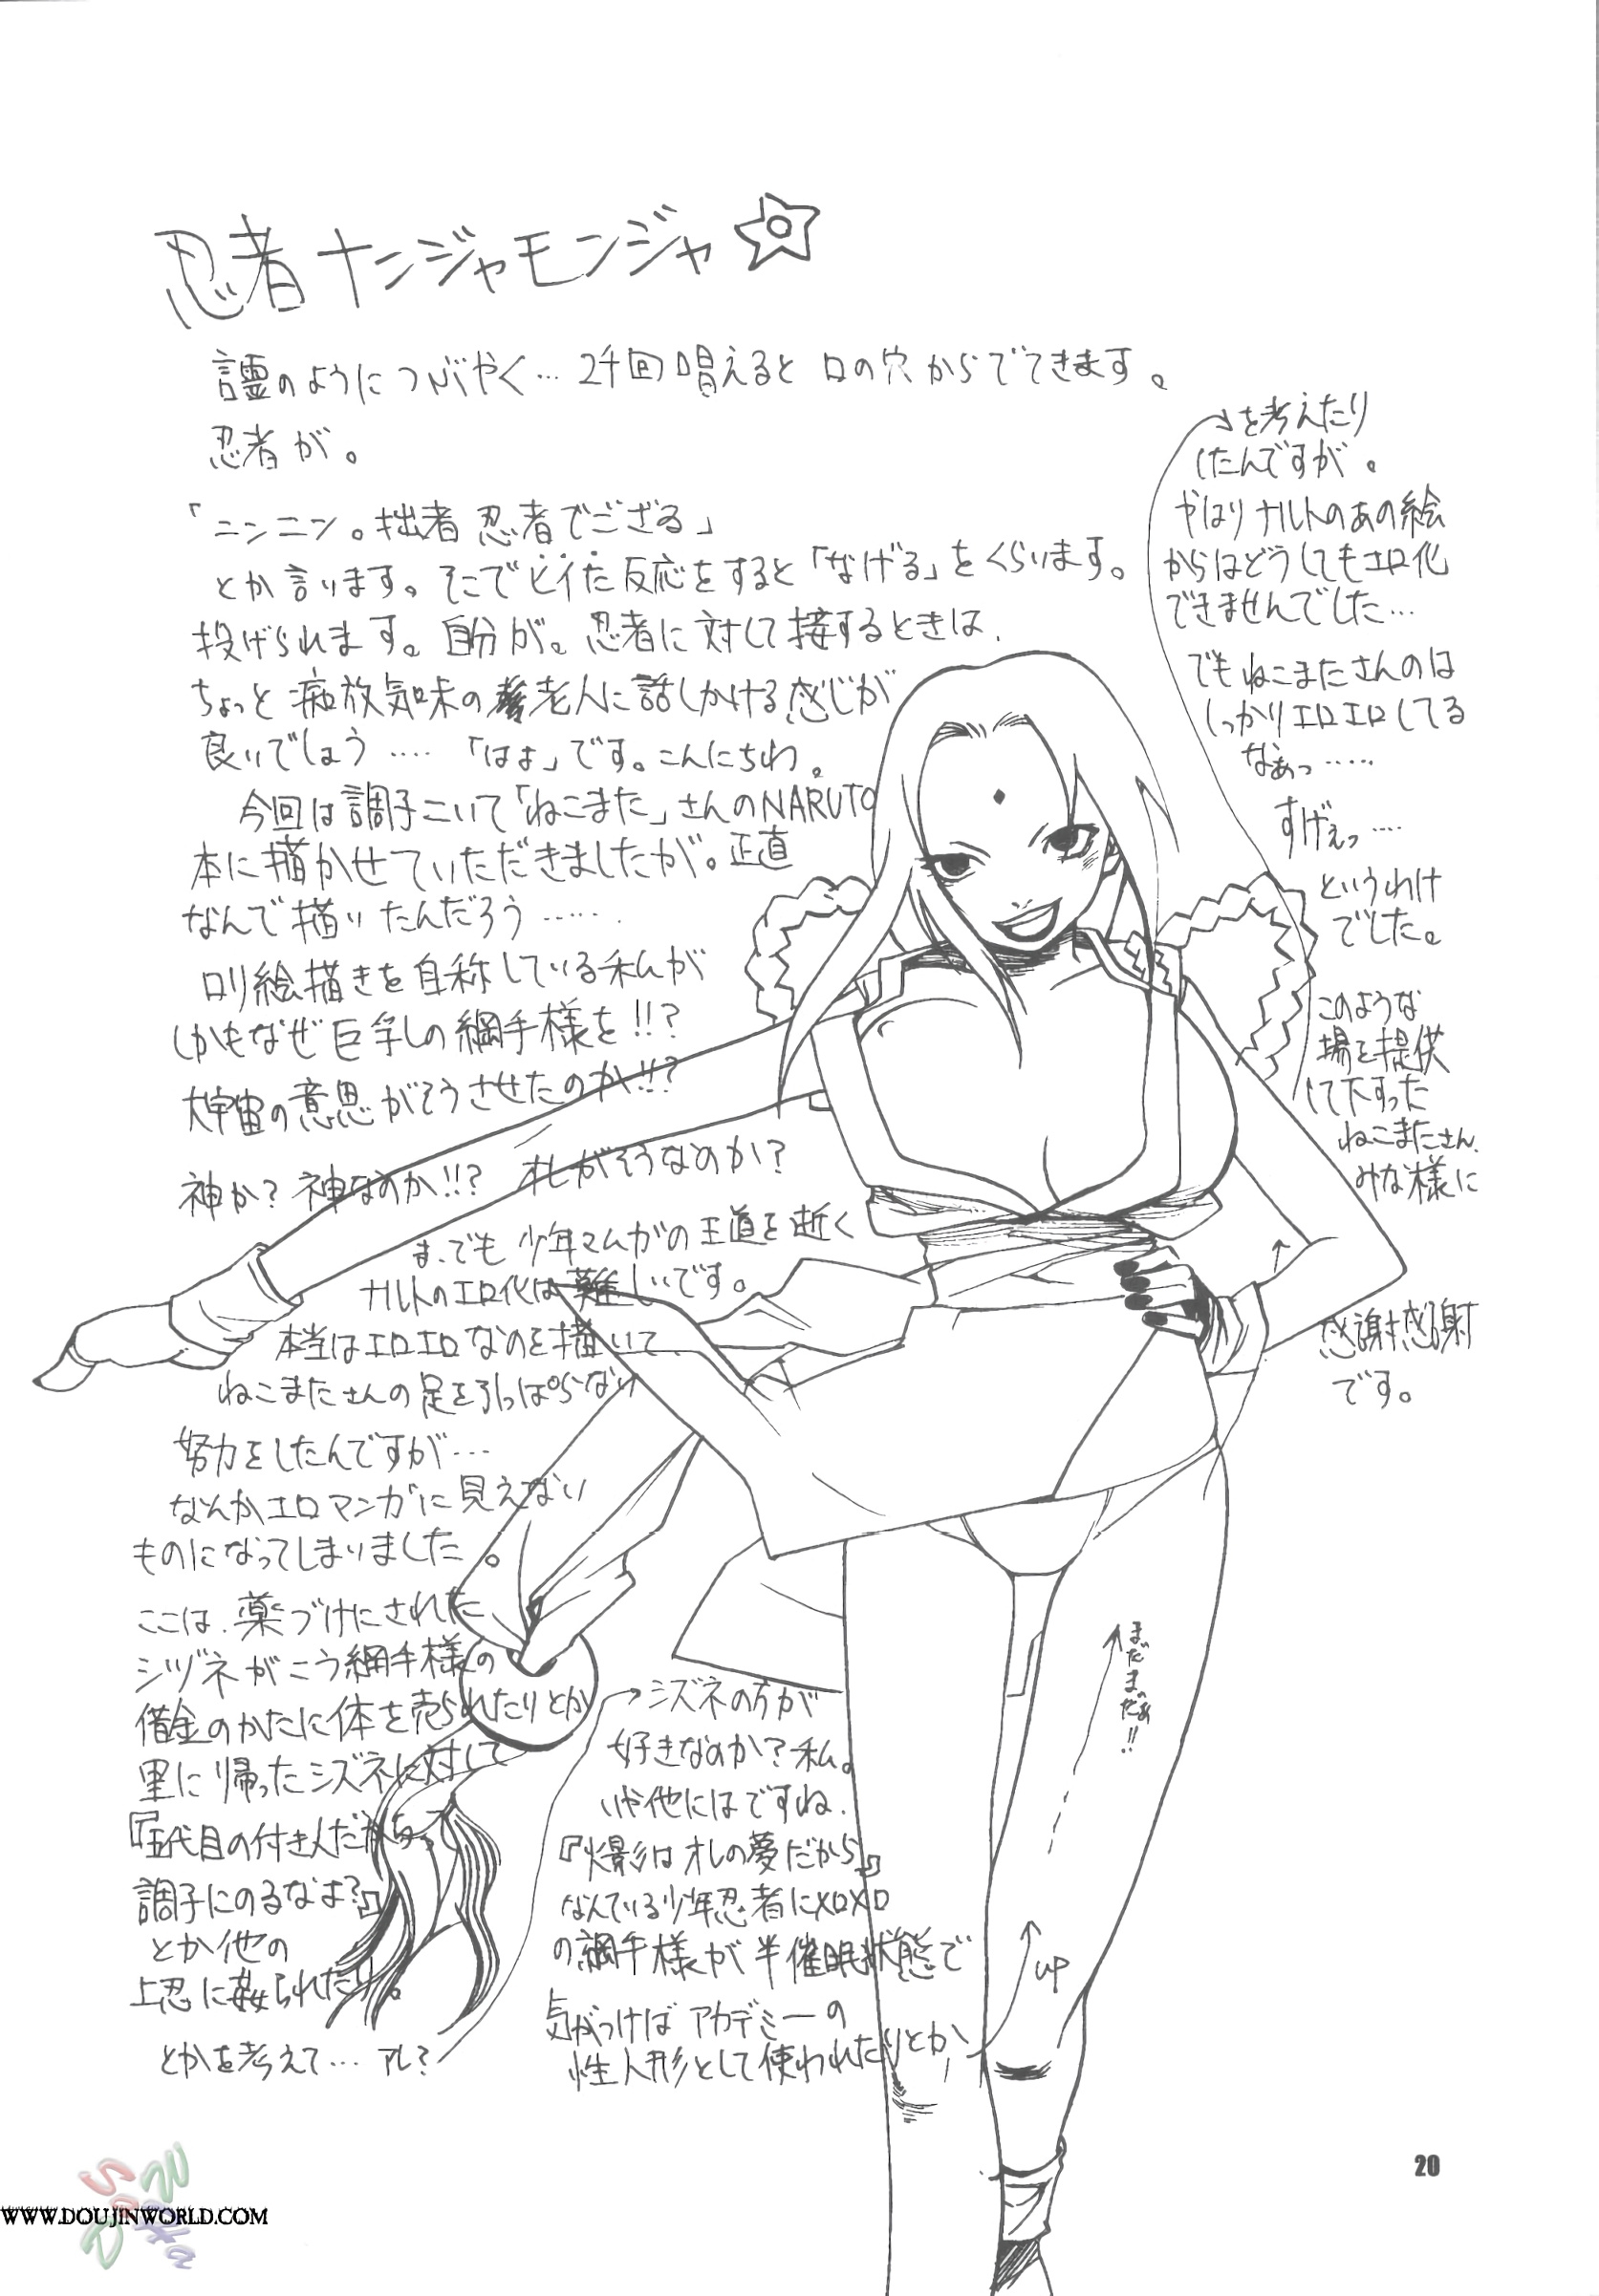 忍者ナンジャモンジャ☆
言霊のようにつぶやく…2千回唱えると口の穴からでてきます。
忍者が。
「ニンニン。拙者忍者でござる」
とか言います。そこでヒイた反応をすると「なげる」をくらいます。
投げられます。自分が。忍者に対して接するときは、
ちょっと痴放気味の老人に話しかける感じが
良いでしょう……「はょ」です。こんにちわ。
今回は調子こいて「ねこまた」さんのNARUTO
本に描かせていただきましたが。正直
なんで描いたんだろう……
ロリ絵描きを自称している私が
しかもなぜ巨乳の綱手様を!!?
大宇宙の意思がそうさせたのか!!?
神か?神なのか!!? オレがそうなのか?
ま、でも少年マムガの王道を逝く
ナルトのエロ化は難しいです。
本当はエロエロなのを描いて、
ねこまたさんの足を引っぱらない
努力をしたんですが…
なんかエロマンガに見えない
ものになってしまいました。
ここは、薬づけにされた
シヅネがこう綱手様の
借金のかたに体を売られたりとか
里に帰ったシズネに対して
『五代目の付き人だからって
調子にのるなよ?』
とか他の
上忍に姦られたり。
とかを考えて…アレ?
シズネの方が
好きなのか?私。
いや他にはですね、
を考えたり
したんですが。
やはりナルトのあの絵
からはどうしてもエロ化
できませんでした…
でもねこまたさんのは
しっかりエロエロしてる
なぁっ……
すげぇっ……
というわけ
でした。
このような
場を提供
して下すった
ねこまたさん、
みな様に
感謝感謝
です。
up
20
WWW.DOUJINWORLD.COM